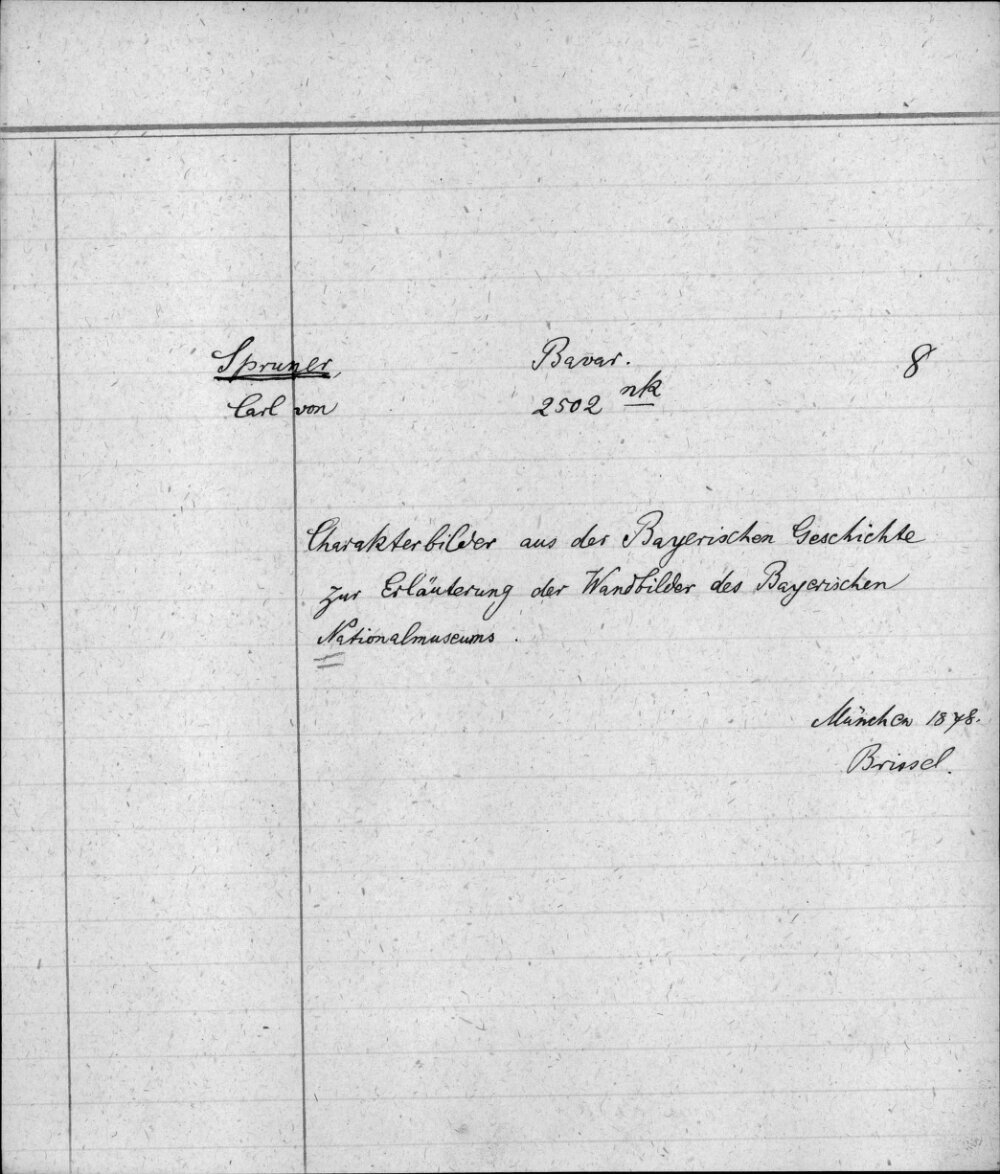 Spruner, Bavar. 8
Carl von 2502 nk
Charakterbilder aus der Bayerischen Geschichte
zur Erläuterung der Wandbilder des Bayerischen
Nationalmuseums.
München 1878.
Brissel.